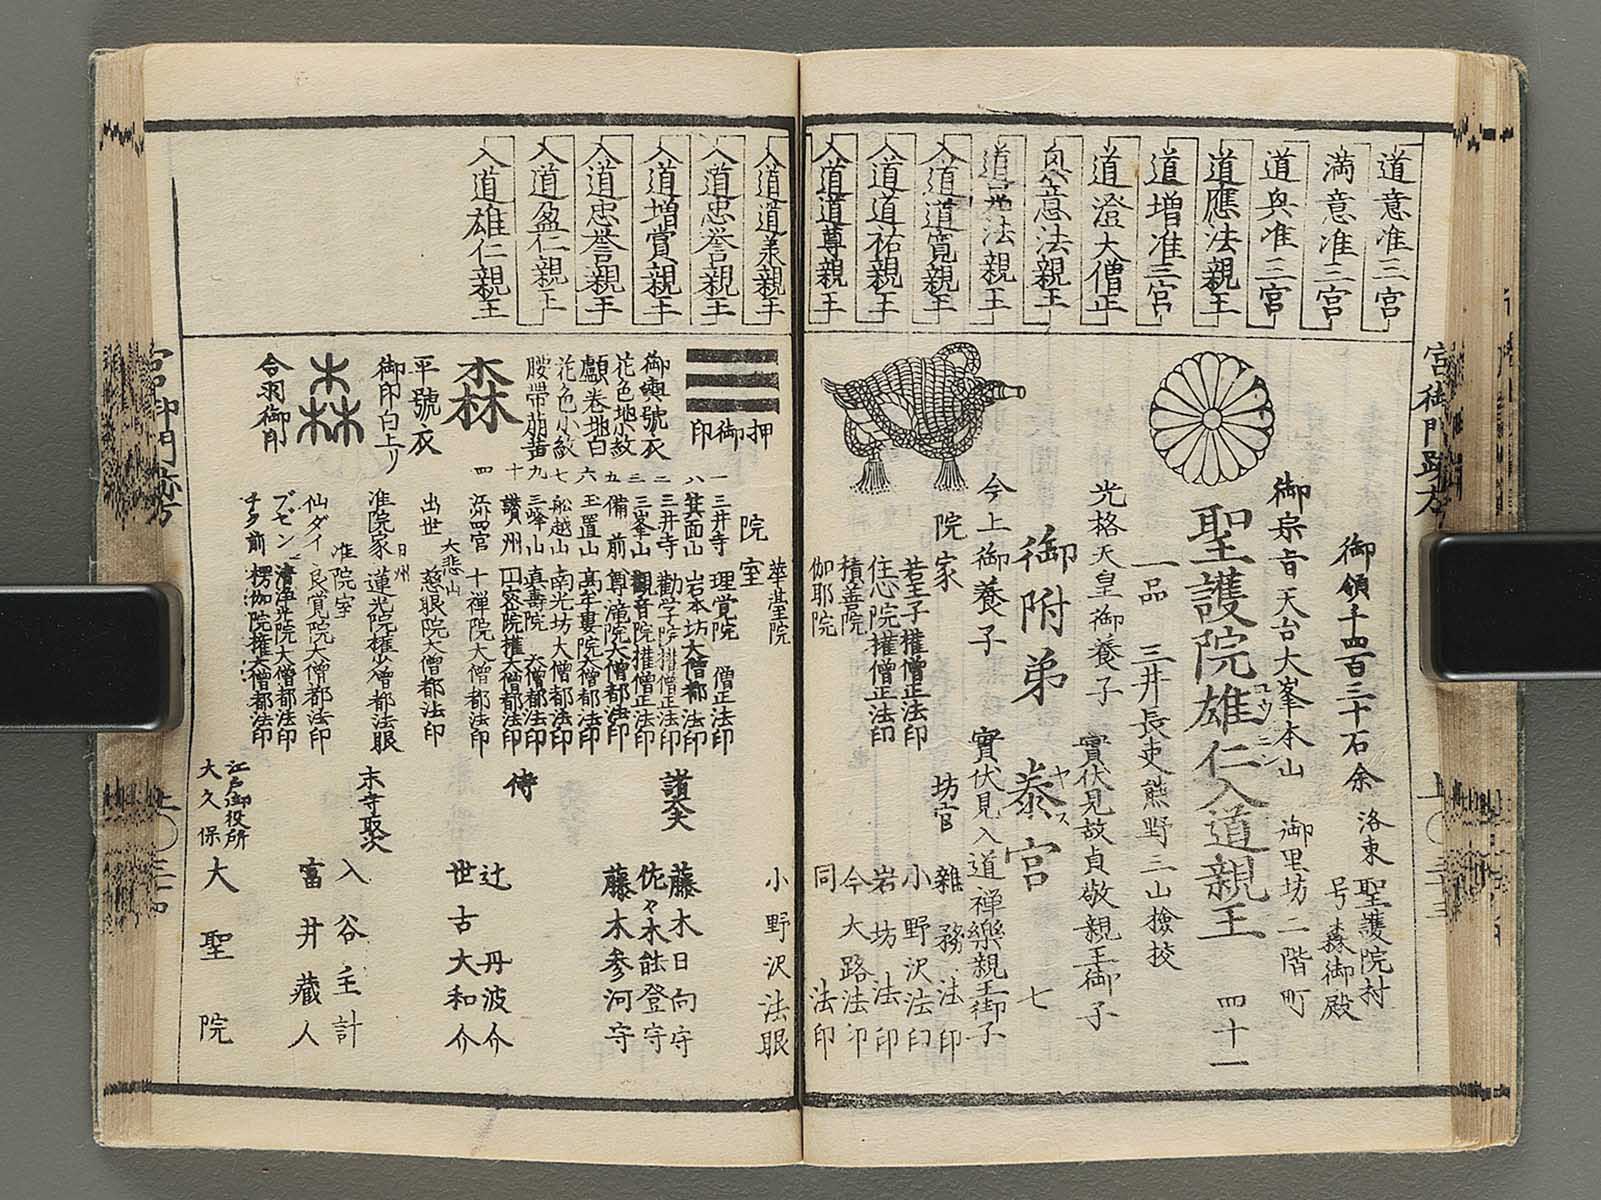 道意准三宮
満意准三宮
道興准三宮
道應法親王
道増准三宮
道澄大僧正
道晃法親王
入道道寛親王
入道道祐親王
入道道尊親王
御領千四百三十石余
洛東聖護院村
号森御殿
御宗旨天台大峯本山
御里坊二階町
聖護院雄仁入道親王
ユウニン
四十一
一品
三井長吏熊野三山撿挍
光格天皇御養子
實伏見故貞敬親王御子
御附弟
泰宮
ヤス
七
今上御養子
實伏見入道禅樂親王御子
院家
若王子権僧正法印
住心院権僧正法印
積善院
伽耶院
坊官
雑務法印
小野沢法印
岩坊法印
今大路法印
同法印
入道忠誉親王
入道増賞親王
入道忠誉親王
入道盈仁親王
入道雄仁親王
押御印
御輿號衣
花色地小紋
顱巻地白
花色小紋
腰帯萠黄
森
平號衣
御印白上リ
森
合羽御印
院室
華臺院
一 三井寺 理覚院 僧正法印
八 箕面山 岩本坊大僧都法印
二 三井寺 勸学院権僧正法印
三 三峯山 觀音院権僧正法印
五 備前 尊瀧院大僧都法印
六 玉置山 高牟婁院大僧都法印
七 舩越山 南光坊大僧都法印
九 三峰山 真壽院 大僧都法印
十 讃州 密院権大僧都法印
四 十禅院大僧都法印
出世
大悲山
慈眼院大僧都法印
准院家
日州
蓮光院権少僧都法眼
准院室
仙ダイ 良覚院大僧都法印
ブゼン 清浄光院大僧都法印
チク前 楞伽院権大僧都法印
小野沢法眼
諸大夫
藤木日向守
佐々木能登守
藤木参河守
侍
辻丹波介
世古大和介
末寺取次
入谷主計
富井藏人
江戸御役所
大久保
大聖院